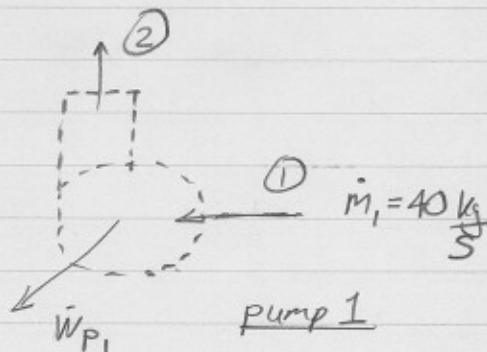 ②
①
ṁ₁ = 40 kg/s
Ẇp₁
pump 1